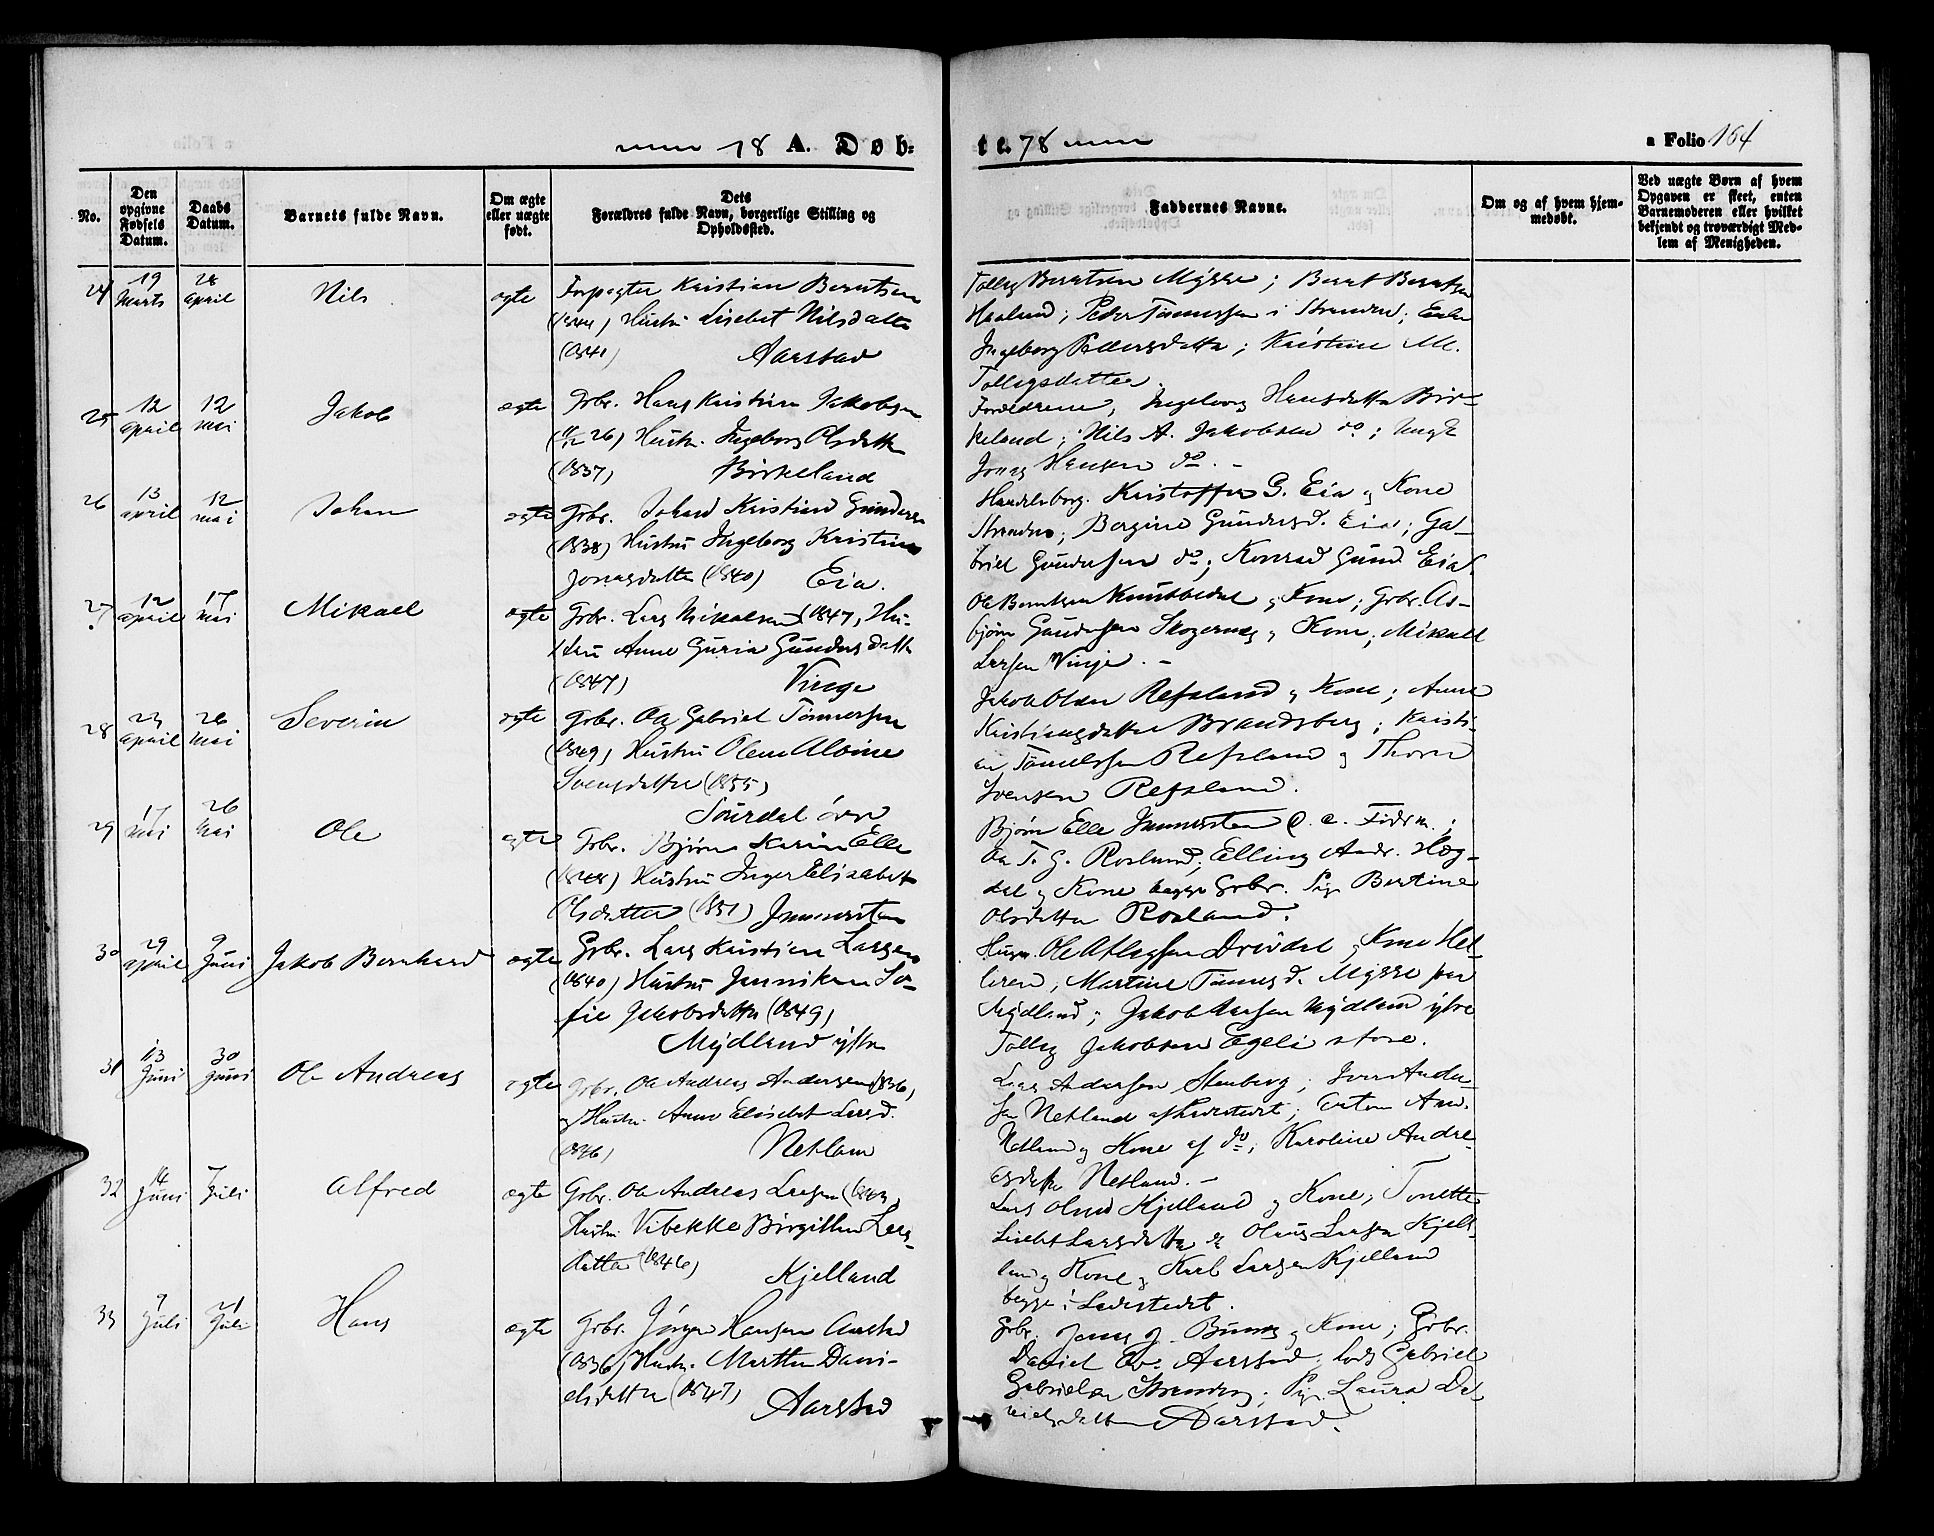 18 A. Døb-
te. 78
a Folio 164
No.
Den opgivne Fødsels Datum.
Daabs Datum.
Barnets fulde Navn.
Om ægte eller uægte født.
Dets Forældres fulde Navn, borgerlige Stilling og Opholdssted.
Faddernes Navne.
Om og af hvem hjemmedøbt.
Ved uægte Børn af hvem Opgaven er skeet, enten Barnemoderen eller hvilket bekjendt og troværdigt Medlem af Menigheden.
24
19 Marts
28 April
Nils
ægte
Forpagter Kristian Berntsen
(1844) Hustru Lisebet Nilsdatter
(1840) Aarstad
Tolleg Berntsen Mysse; Bernt Berntsen
Haaland; Peder Tønnessen i Stranden; Enke
Ingeborg Pedersdatter; Kristine M.
Tollegsdatter.
25
12 April
12 Mai
Jakob
ægte
Gbr. Hans Kristian Jakobsen
26) Hustr. Ingeborg Olsdatter
(1837) Birkeland
Forældrene, Ingeborg Hansdatter Bir-
keland; Nils A. Jakobsen do; Ungk
Jonas Hansen do. -
26
13 April
12 Mai
Johan
ægte
Gbr. Johan Kristian Gunders.
(1838) Hustru Ingeborg Kristine
Jonasdatter (1840) Eia.
Handelsborg. Kristoffer G. Eia og Kone
Stranden; Bergine Gundersd. Eia; Ga-
briel Gundersen do; Konrad Gund. Eia.
27
12 April
17 Mai
Mikael
ægte
Gbr. Lars Mikalsen (1847, Hu-
stru Anne Guria Gundersdatter
(1847) Vinje
Ole Berntsen og Kone; Gbr. As-
bjørn Gundersen Skogernes og Kone; Mikael
Larsen Vinje. -
28
23 April
26 Mai
Severin
ægte
Gbr. Aa Gabriel Tønnessen
(1849) Hustru Olene Alvine
Svensdatter (1855)
Sørdal øvre
Jakob Olsen Refsland og Kone; Anne
Kristiansdatter Brandsberg; Kristi-
an Tønnessen Refsland og Thore
Svensen Refsland.
29
17 Mai
26 Mai
Ole
ægte
Gbr. Bjørn Karin Elle
(1848) Hustru Inger Elisabet
Olsdatter (1851) Immersten
Bjørn Elle Immersten
Aa T. G. Rosland; Elling Andr. Hæg-
dal og Kone begge Gbr. Pige Bertine
Olsdatter Rosland.
30
29 April
9 Juni
Jakob Bernhard
ægte
Gbr. Lars Kristian Larsen
(1840) Hustru Jannikan So-
fie Jakobsdatter (1849)
Mydland ystre
Husm. Ole Atlagsen Drivdal og Kone Hel-
leren; Martine Tønnesd. Mysse paa
Mydland; Jakob Aasen Mydland ystre
Tolleg Jakobsen Egeli store.
31
13 Juni
30 Juni
Ole Andreas
ægte
Gbr. Ole Andreas Andersen (1836,
og Hustr. Anne Elisebet Larsd.
(1846) Netland
Lars Andersen Stenberg; Iver Ander-
sen Netland af Ladestedet; And.
Netland og Kone af do; Karoline Andre-
asdatter Netland. -
32
14 Juni
7 Juli
Alfred
ægte
Gbr. Ole Andreas Larsen (1843,
Hustru Vibekke Birgitthe Lars-
datter (1846)
Kjelland
Lars Olsen Kjelland og Kone; Tonette
Lisebet Larsdatter og Olaus Larsen Kjel-
land og Kone og Karl Larsen Kjelland
begge i Ladestedet.
33
7 Juli
21 Juli
Hans
ægte
Gbr. Jørgen Hansen Aarstad
(1836) Hustr. Marthe Dani-
elsdatter (1847)
Aarstad
Gbr. Jonas og Kone; Gbr.
Daniel Aarstad; Lods Gabriel
Gabrielsen Stranden; Pige Laura Da-
nielsdatter Aarstad.